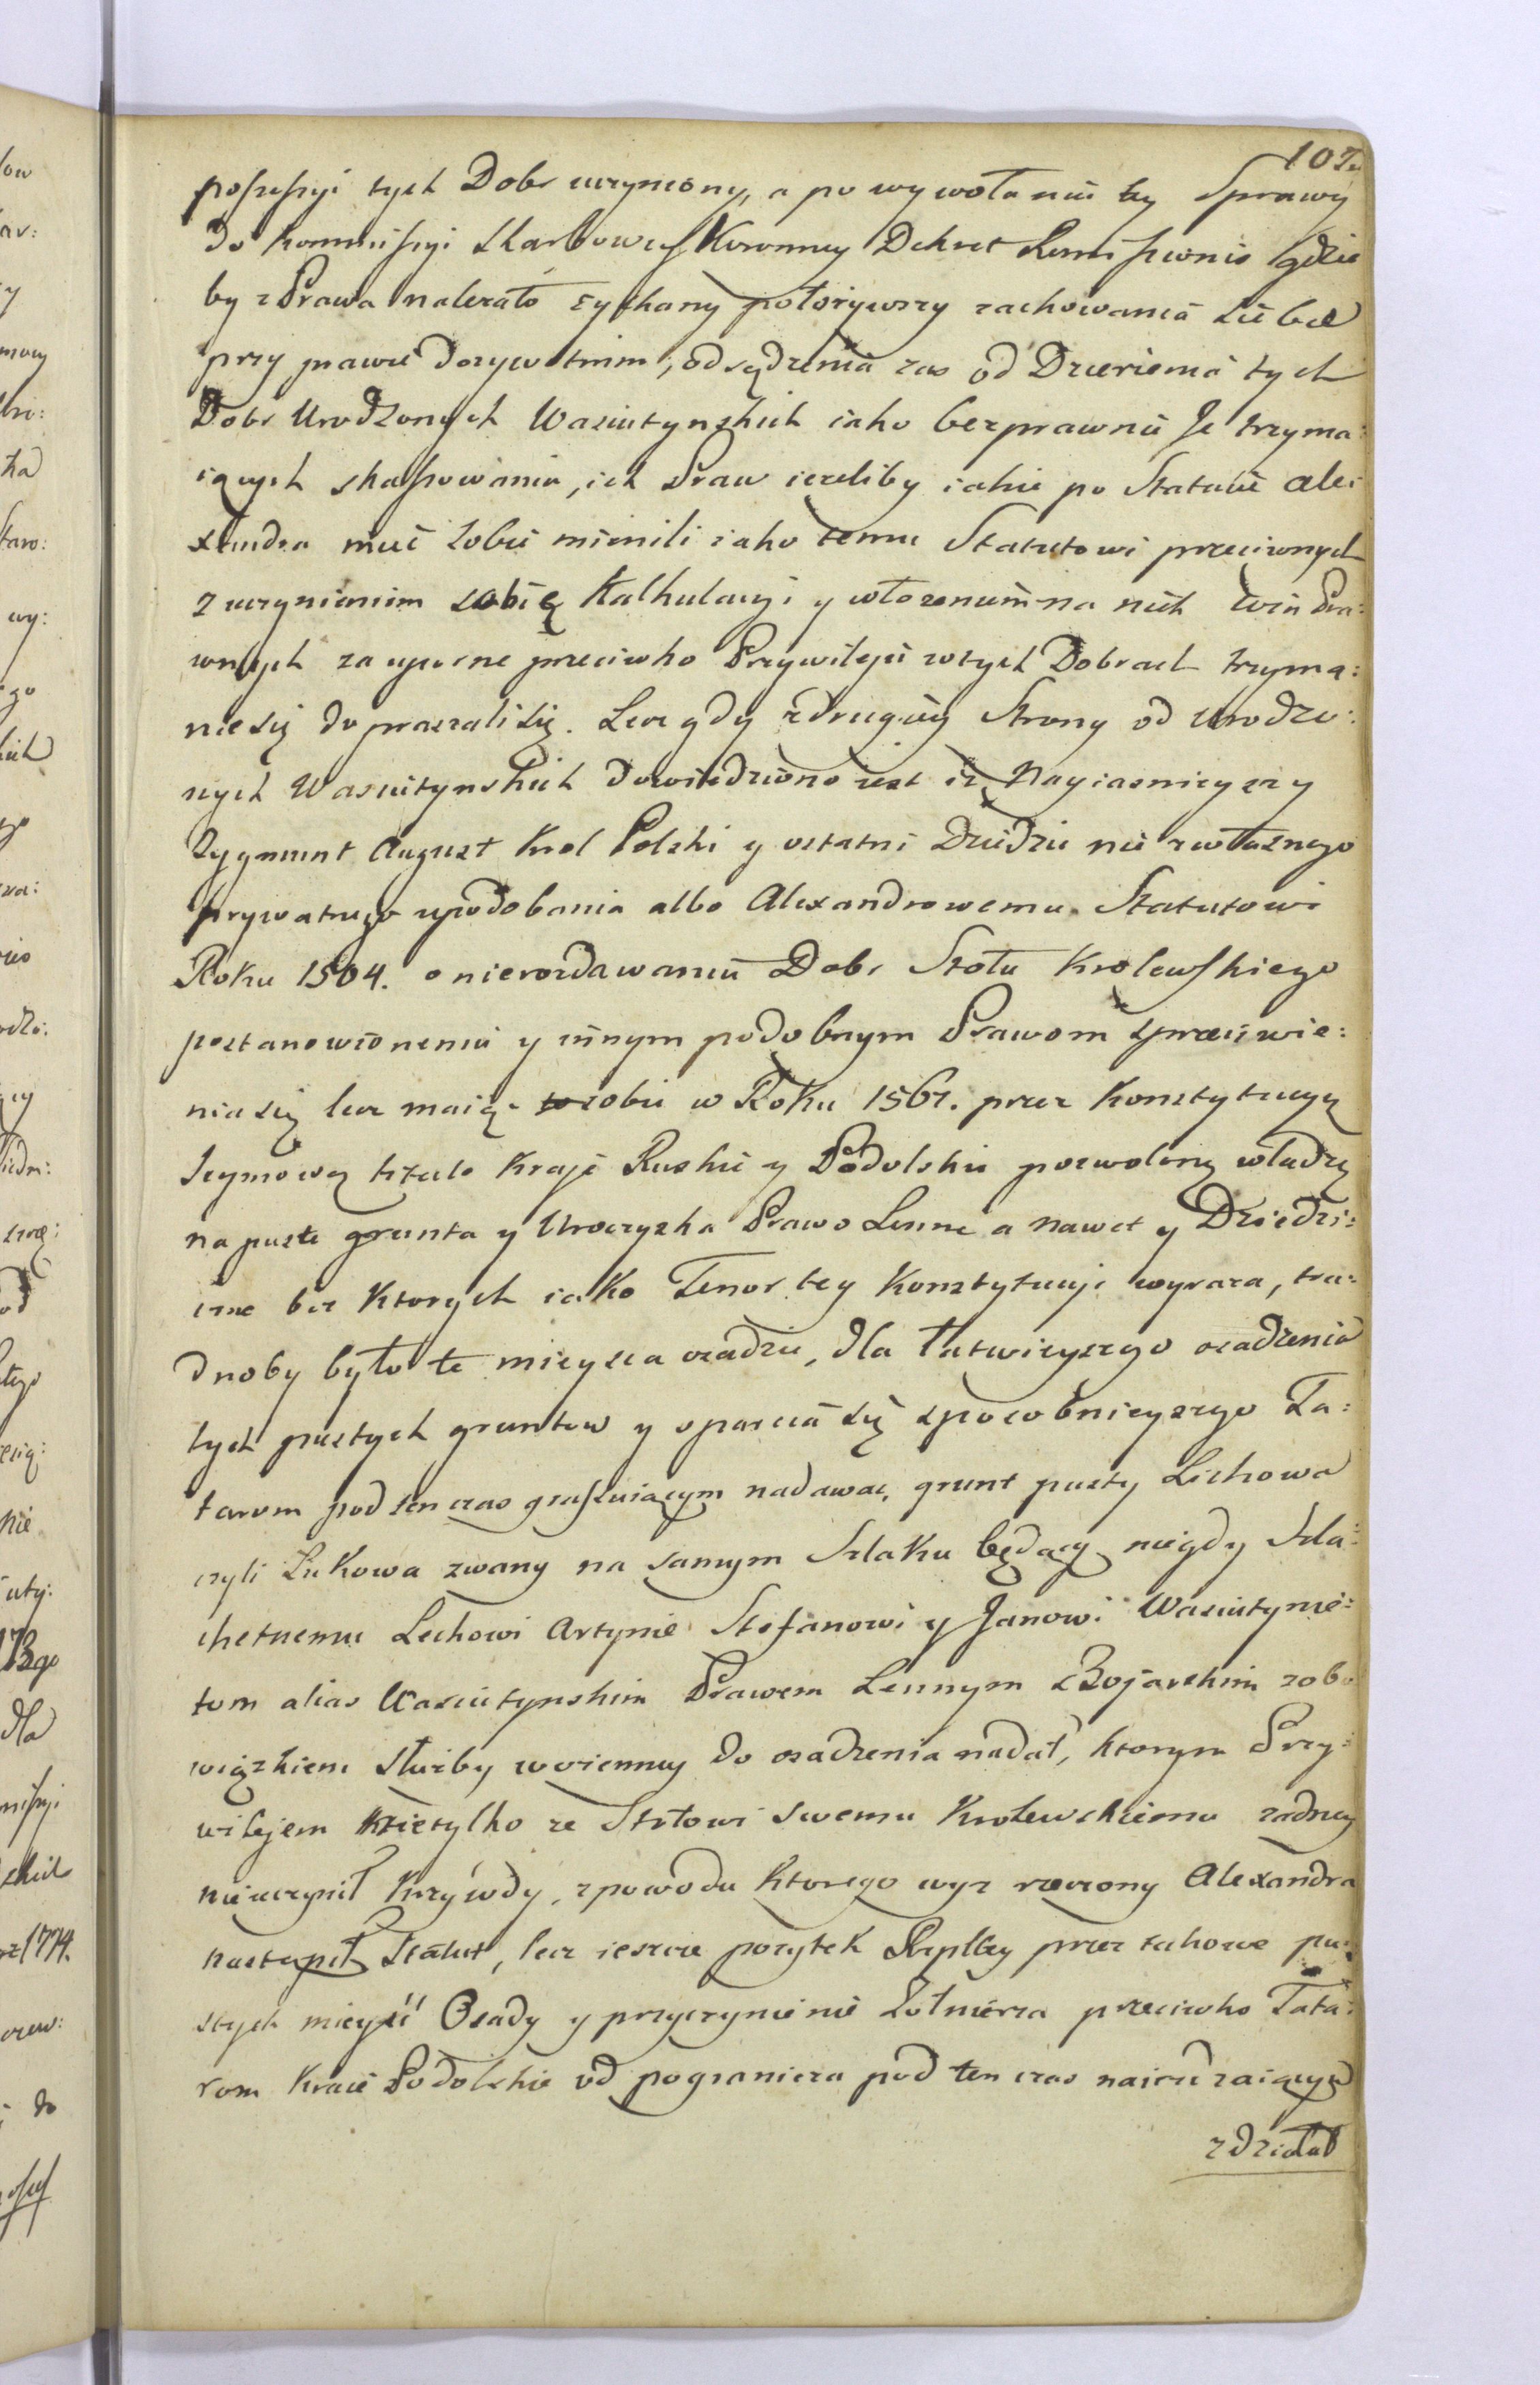 107.
possessyi tych Dobr uczyniony, a po wywołaniu tey Sprawy
do Kommissyi Skarbowey Koronney Dekret Remissiwnie gdzie
by z Prawa należało zyskany położywszy zachowania siebie
przy prawie dożywotnim, odsądzenia zas od Dzierżenia tych
Dobr Urodzonych Wasiutynskich iako bezprawnie Je trzyma:
iących skassowania, ich Praw ieżeliby iakie po Statucie Ale:
xandra mieć sobie mienili iako temu Statutowi przeciwnych
z uczynieniem sobie Kalkulacyi y włożeniem na nich win Pra:
wnych za uporne przeciwko Przywileju w tych Dobrach trzyma:
nie się dopraszali się. Lecz gdy z drugiey Strony od Urodzo:
nych Wasiutynskich dowiedziono iest iż Nayiasnieyszy
Zygmunt August Krol Polski y ostatni Dziedzic nie z własnego
prywatnego upodobania albo Alexandrowemu Statutowi
Roku 1504. o nierozdawaniu Dobr Stołu Krolewskiego
postanowionemu y innym podobnym Prawom sprzeciwie:
nia się lecz maiąc sobie w Roku 1567. przez Konstytucyą
Seymową tytulo Kraje Ruskie y Podolskie pozwoloną władzę
na puste grunta y Uroczyska Prawo Lenne a nawet y Dziedzi:
czne bez Ktorych iako Tenor tey Konstytucyi wyraza, tru:
dnoby było te mieysca osadzic, dla łatwieyszego osadzenia
tych pustych gruntow y oparcia się sposobnieyszego Ta:
tarom pod ten czas grassuiącym nadawac, grunt pusty Lichowa
czyli Lukowa zwany na samym Szlaku będący niegdy Szla:
chetnemu Lechowi Artynie Stefanowi y Janowi Wasiutynie:
tom alias Wasiutynskim Prawem Lennym z Bojarskim zobo
wiązkiem służby woienney do osadzenia nadał, ktorym Przy:
wilejem nietylko ze Stołowi swemu Krolewskiemu zadney
nie uczynił Krzywdy, z powodu Ktorego wyz rzeczony Alexandra
nastąpił Statut, lecz ieszcze pozytek Rzpltey przez takowe pu:
stych mieysc Osady y przyczynienie Żołnierza przeciwko Tata:
rom Kraie Podolskie od pogranicza pod ten czas naiezdzaiących
zdziałał